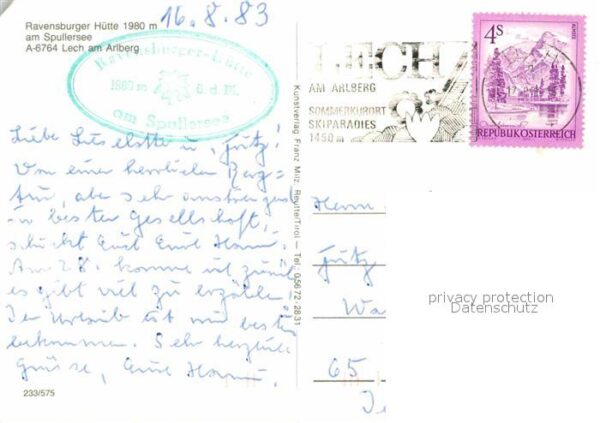 16.8.83
Ravensburger Hütte 1980 m
am Spullersee
A-6764 Lech am Arlberg
Ravensburger-Hütte
am Spullersee
LECH
AM ARLBERG
SOMMERKURORT
SKIPARADIES
1450 m
4S
REPUBLIK ÖSTERREICH
Liebe Liselotte u. Fritz!
Von einer herrlichen Berg=
tour, aber sehr anstrengend
in bester Gesellschaft,
schickt Euch Eure
Am 28. komme ich zurück
es gibt viel zu erzählen!
Der Urlaub ist mir bestens
bekommen. Sehr herzliche
Grüsse, Eure
Kunstverlag Franz Milz, Reutte/Tirol – Tel. 05672-2831
Herrn
Fritz
Wa
65
privacy protection
Datenschutz
233/575